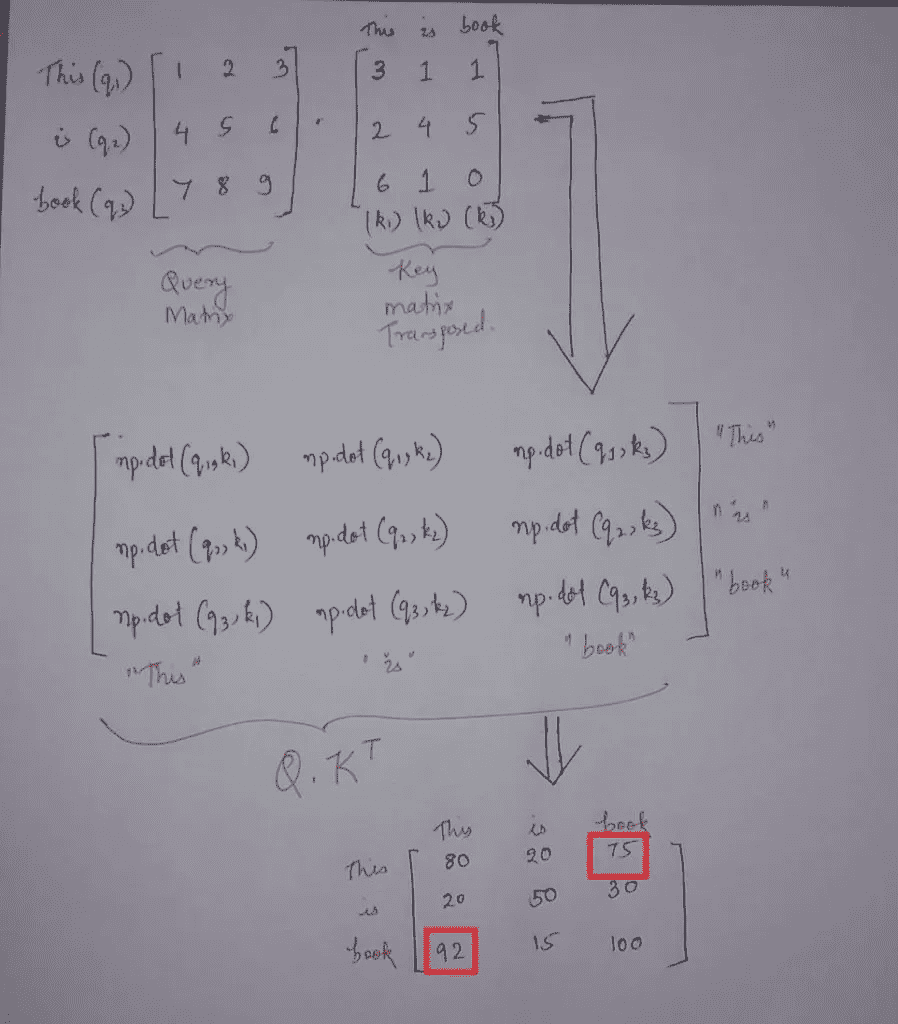 This is book
This (q₁) 1 2 3 3 1 1
is (q₂) 4 5 6 · 2 4 5
book (q₃) 7 8 9 6 1 0
(k₁) (k₂) (k₃)
Query Key
Matrix matrix
Transposed.
np.dot (q₁,k₁) np.dot (q₁,k₂) np.dot (q₁,k₃) "This"
np.dot (q₂,k₁) np.dot (q₂,k₂) np.dot (q₂,k₃) "is"
np.dot (q₃,k₁) np.dot (q₃,k₂) np.dot (q₃,k₃) "book"
"This" "is" "book"
Q.Kᵀ
This is book
This 80 20 75
is 20 50 30
book 92 15 100